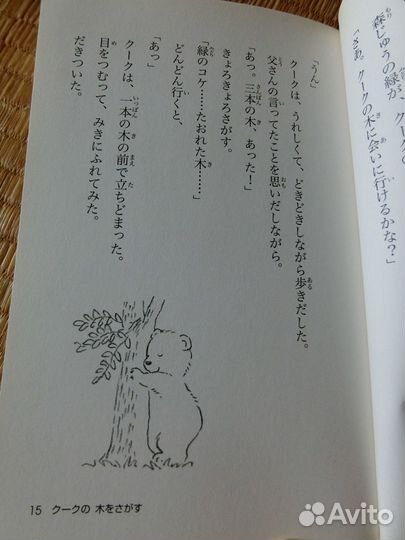 森じゅうの緑が、ク
「さあ。クークの木に会いに行けるかな？」
「うん」
クークは、うれしくて、どきどきしながら歩きだした。
父さんの言ってたことを思いだしながら。
「あっ。三本の木、あった！」
きょろきょろさがす。
「緑のコケ……たおれた木……」
どんどん行くと、
「あっ」
クークは、一本の木の前で立ちどまった。
目をつむって、みきにふれてみた。
だきついた。
15 クークの 木をさがす
Avito